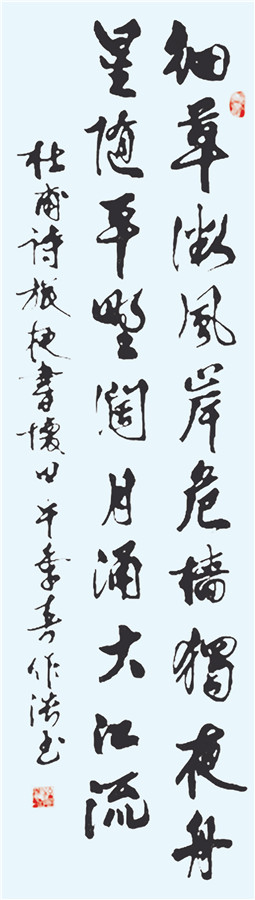 細草微風岸危檣獨夜舟
星隨平野闊月涌大江流
杜甫詩旅夜書懷甲午季春作